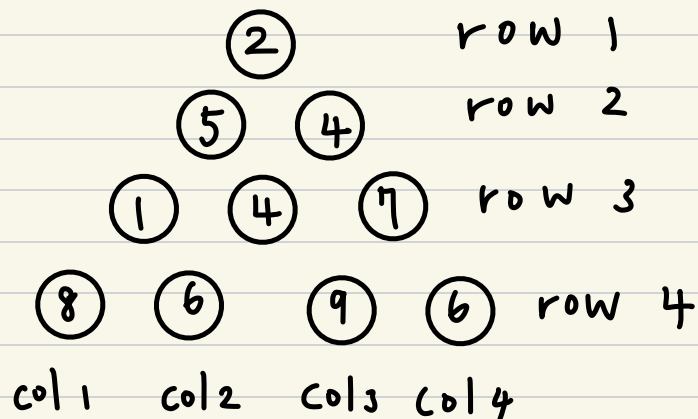 2 row 1
5 4 row 2
1 4 7 row 3
8 6 9 6 row 4
col 1 col 2 col 3 col 4